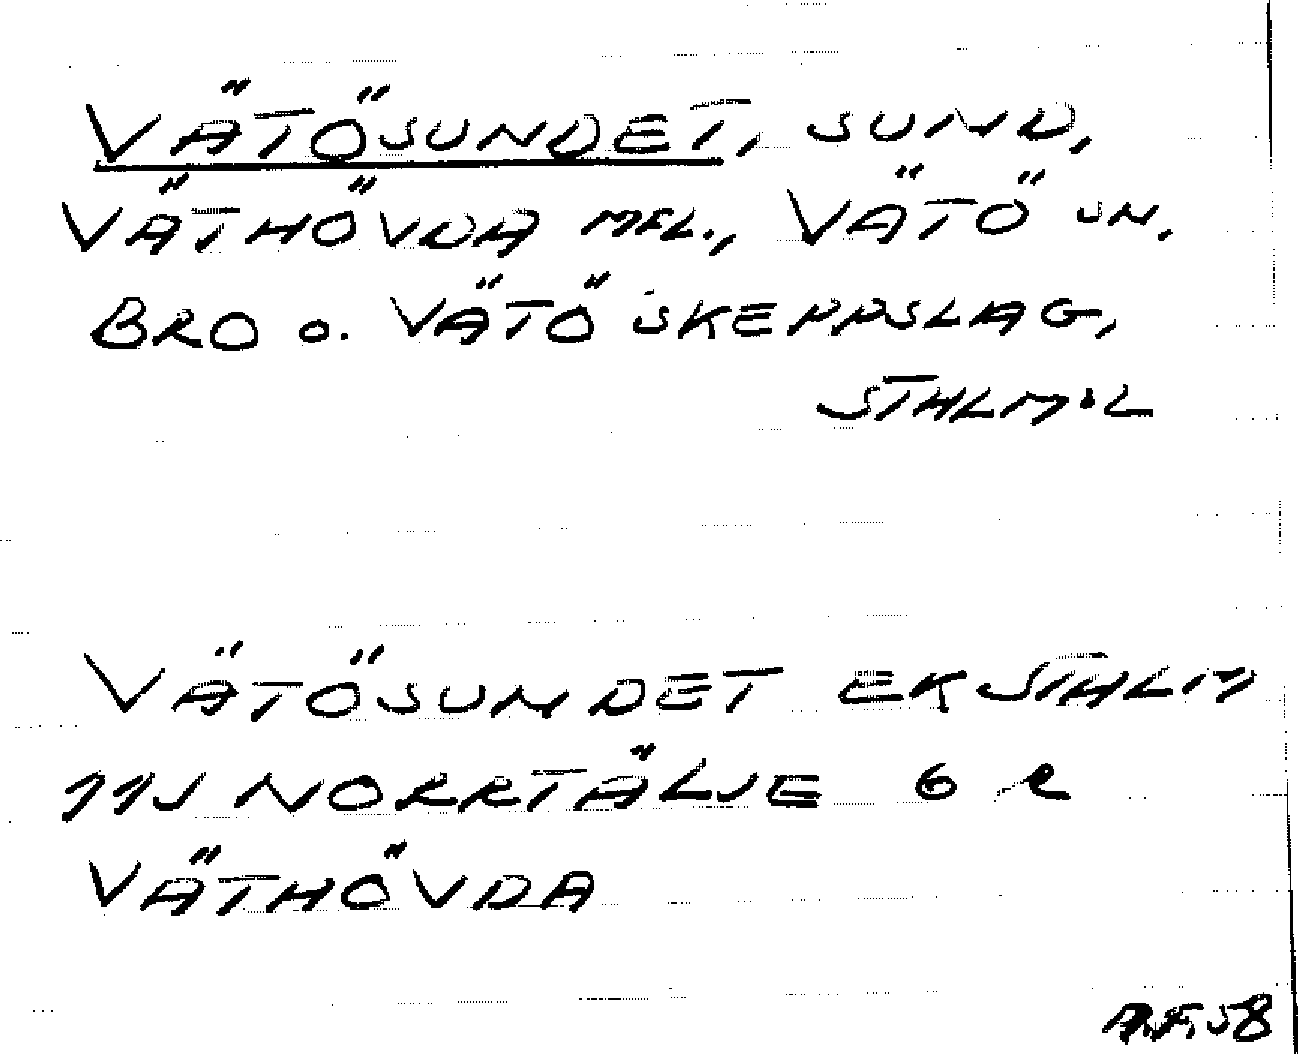 VÄTÖSUNDET, SUND,
VÄTHÖVDA MFL., VÄTÖ SN,
BRO o. VÄTÖ SKEPPSLAG,
STHLM:L
VÄTÖSUNDET EK STHLM
11J NORRTÄLJE 6 e
VÄTHÖVDA